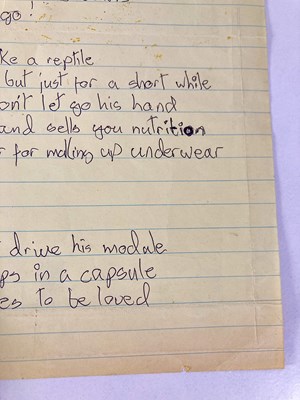 go!
ke a reptile
but just for a short while
on't let go his hand
and sells you nutrition
for making up underwear
drive his module
ps in a capsule
es to be loved